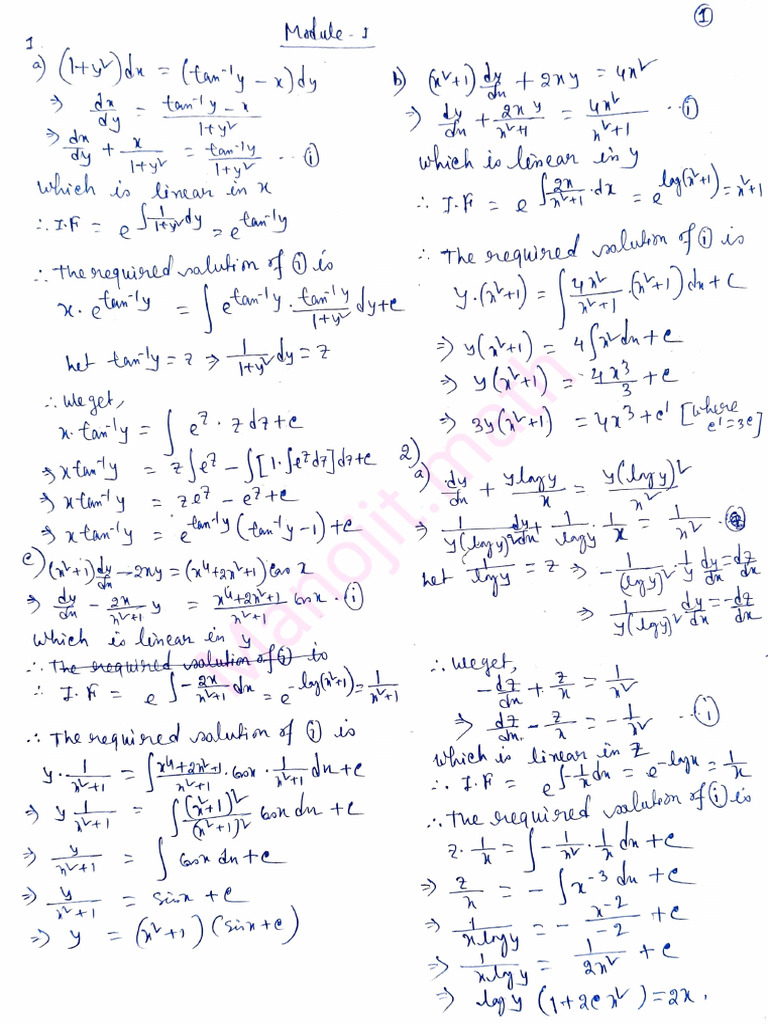 ①
Module - I
1.
a) (1+y²)dx = (tan⁻¹y – x)dy
⇒ dx/dy = (tan⁻¹y – x)/(1+y²)
⇒ dx/dy + x/(1+y²) = tan⁻¹y/(1+y²) ...①
which is linear in x
∴ I.F = e^∫1/(1+y²)dy = e^tan⁻¹y
∴ The required solution of ① is
x·e^tan⁻¹y = ∫e^tan⁻¹y · tan⁻¹y/(1+y²) dy + c
Let tan⁻¹y = z ⇒ 1/(1+y²) dy = z
∴ We get,
x·tan⁻¹y = ∫e^z · z dz + c
⇒ x tan⁻¹y = z∫e^z – ∫[1·∫e^z dz]dz + c
⇒ x tan⁻¹y = ze^z – e^z + c
⇒ x tan⁻¹y = e^tan⁻¹y (tan⁻¹y – 1) + c
c) (x²+1)dy/dx – 2xy = (x⁴+2x²+1)cos x
⇒ dy/dx – 2x/(x²+1) y = (x⁴+2x²+1)/(x²+1) cos x ·①
which is linear in y
∴ The required solution of ① is
∴ I.F = e^∫–2x/(x²+1)dx = e^–log(x²+1) = 1/(x²+1)
∴ The required solution of ① is
y·1/(x²+1) = ∫(x⁴+2x²+1)/(x²+1)·cos x·1/(x²+1) dx + c
⇒ y 1/(x²+1) = ∫(x²+1)²/(x²+1)² cos x dx + c
⇒ y/(x²+1) = ∫cos x dx + c
⇒ y/(x²+1) = sin x + c
⇒ y = (x²+1)(sin x + c)
b) (x²+1)dy/dx + 2xy = 4x²
⇒ dy/dx + 2xy/(x²+1) = 4x²/(x²+1) ...①
which is linear in y
∴ I.F = e^∫2x/(x²+1)·dx = e^log(x²+1) = x²+1
∴ The required solution of ① is
y·(x²+1) = ∫4x²/(x²+1)·(x²+1)dx + c
⇒ y(x²+1) = 4∫x²dx + c
⇒ y(x²+1) = 4x³/3 + c
⇒ 3y(x²+1) = 4x³ + c' [where c'=3c]
2)
a) dy/dx + y log y/x = y(log y)²/x²
⇒ 1/(y(log y)²) dy/dx + 1/log y · 1/x = 1/x² ·
Let 1/log y = z ⇒ –1/(log y)² · 1/y dy/dx = dz/dx
⇒ 1/(y(log y)²) dy/dx = –dz/dx
∴ We get,
–dz/dx + z/x = 1/x²
⇒ dz/dx – z/x = –1/x² ...①
which is linear in z
∴ I.F = e^∫–1/x dx = e^–log x = 1/x
∴ The required solution of ① is
z·1/x = ∫–1/x²·1/x dx + c
⇒ z/x = –∫x⁻³dx + c
⇒ 1/(x log y) = – x⁻²/–2 + c
⇒ 1/(x log y) = 1/(2x²) + c
⇒ log y (1+2cx²) = 2x.
Manojit.math